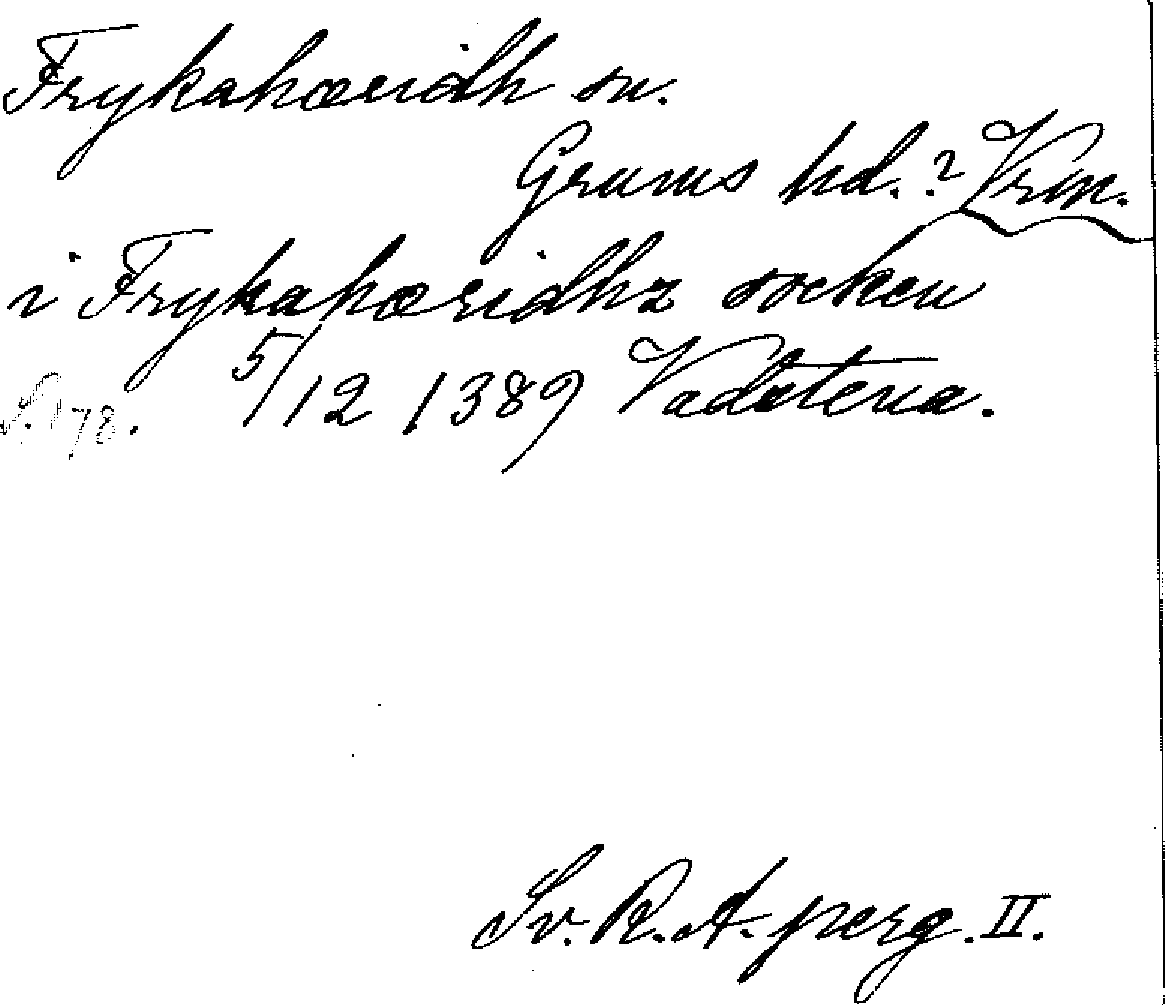 Frykahæridh sn.
Grums hd.? Vrm.
i Frykahæridhz socken
5/12 1389 Vadstena.
S. 178.
Sv. R. A. perg. II.